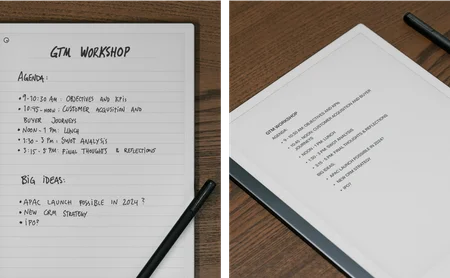 GTM WORKSHOP
AGENDA:
• 9-10:30 AM: OBJECTIVES AND KPIs
• 10:45-NOON: CUSTOMER ACQUISITION AND
BUYER JOURNEYS
• NOON-1 PM: LUNCH
• 1:30-3 PM: SWOT ANALYSIS
• 3:15-5 PM: FINAL THOUGHTS & REFLECTIONS
BIG IDEAS:
• APAC LAUNCH POSSIBLE IN 2024?
• NEW CRM STRATEGY
• IPO?
GTM WORKSHOP
AGENDA:
• 9-10:30 AM: OBJECTIVES AND KPIS
• 10:45-NOON: CUSTOMER ACQUISITION AND BUYER
JOURNEYS
• NOON-1 PM: LUNCH
• 1:30-3 PM: SWOT ANALYSIS
• 3:15-5 PM: FINAL THOUGHTS & REFLECTIONS
BIG IDEAS:
• APAC LAUNCH POSSIBLE IN 2024?
• NEW CRM STRATEGY
• IPO?